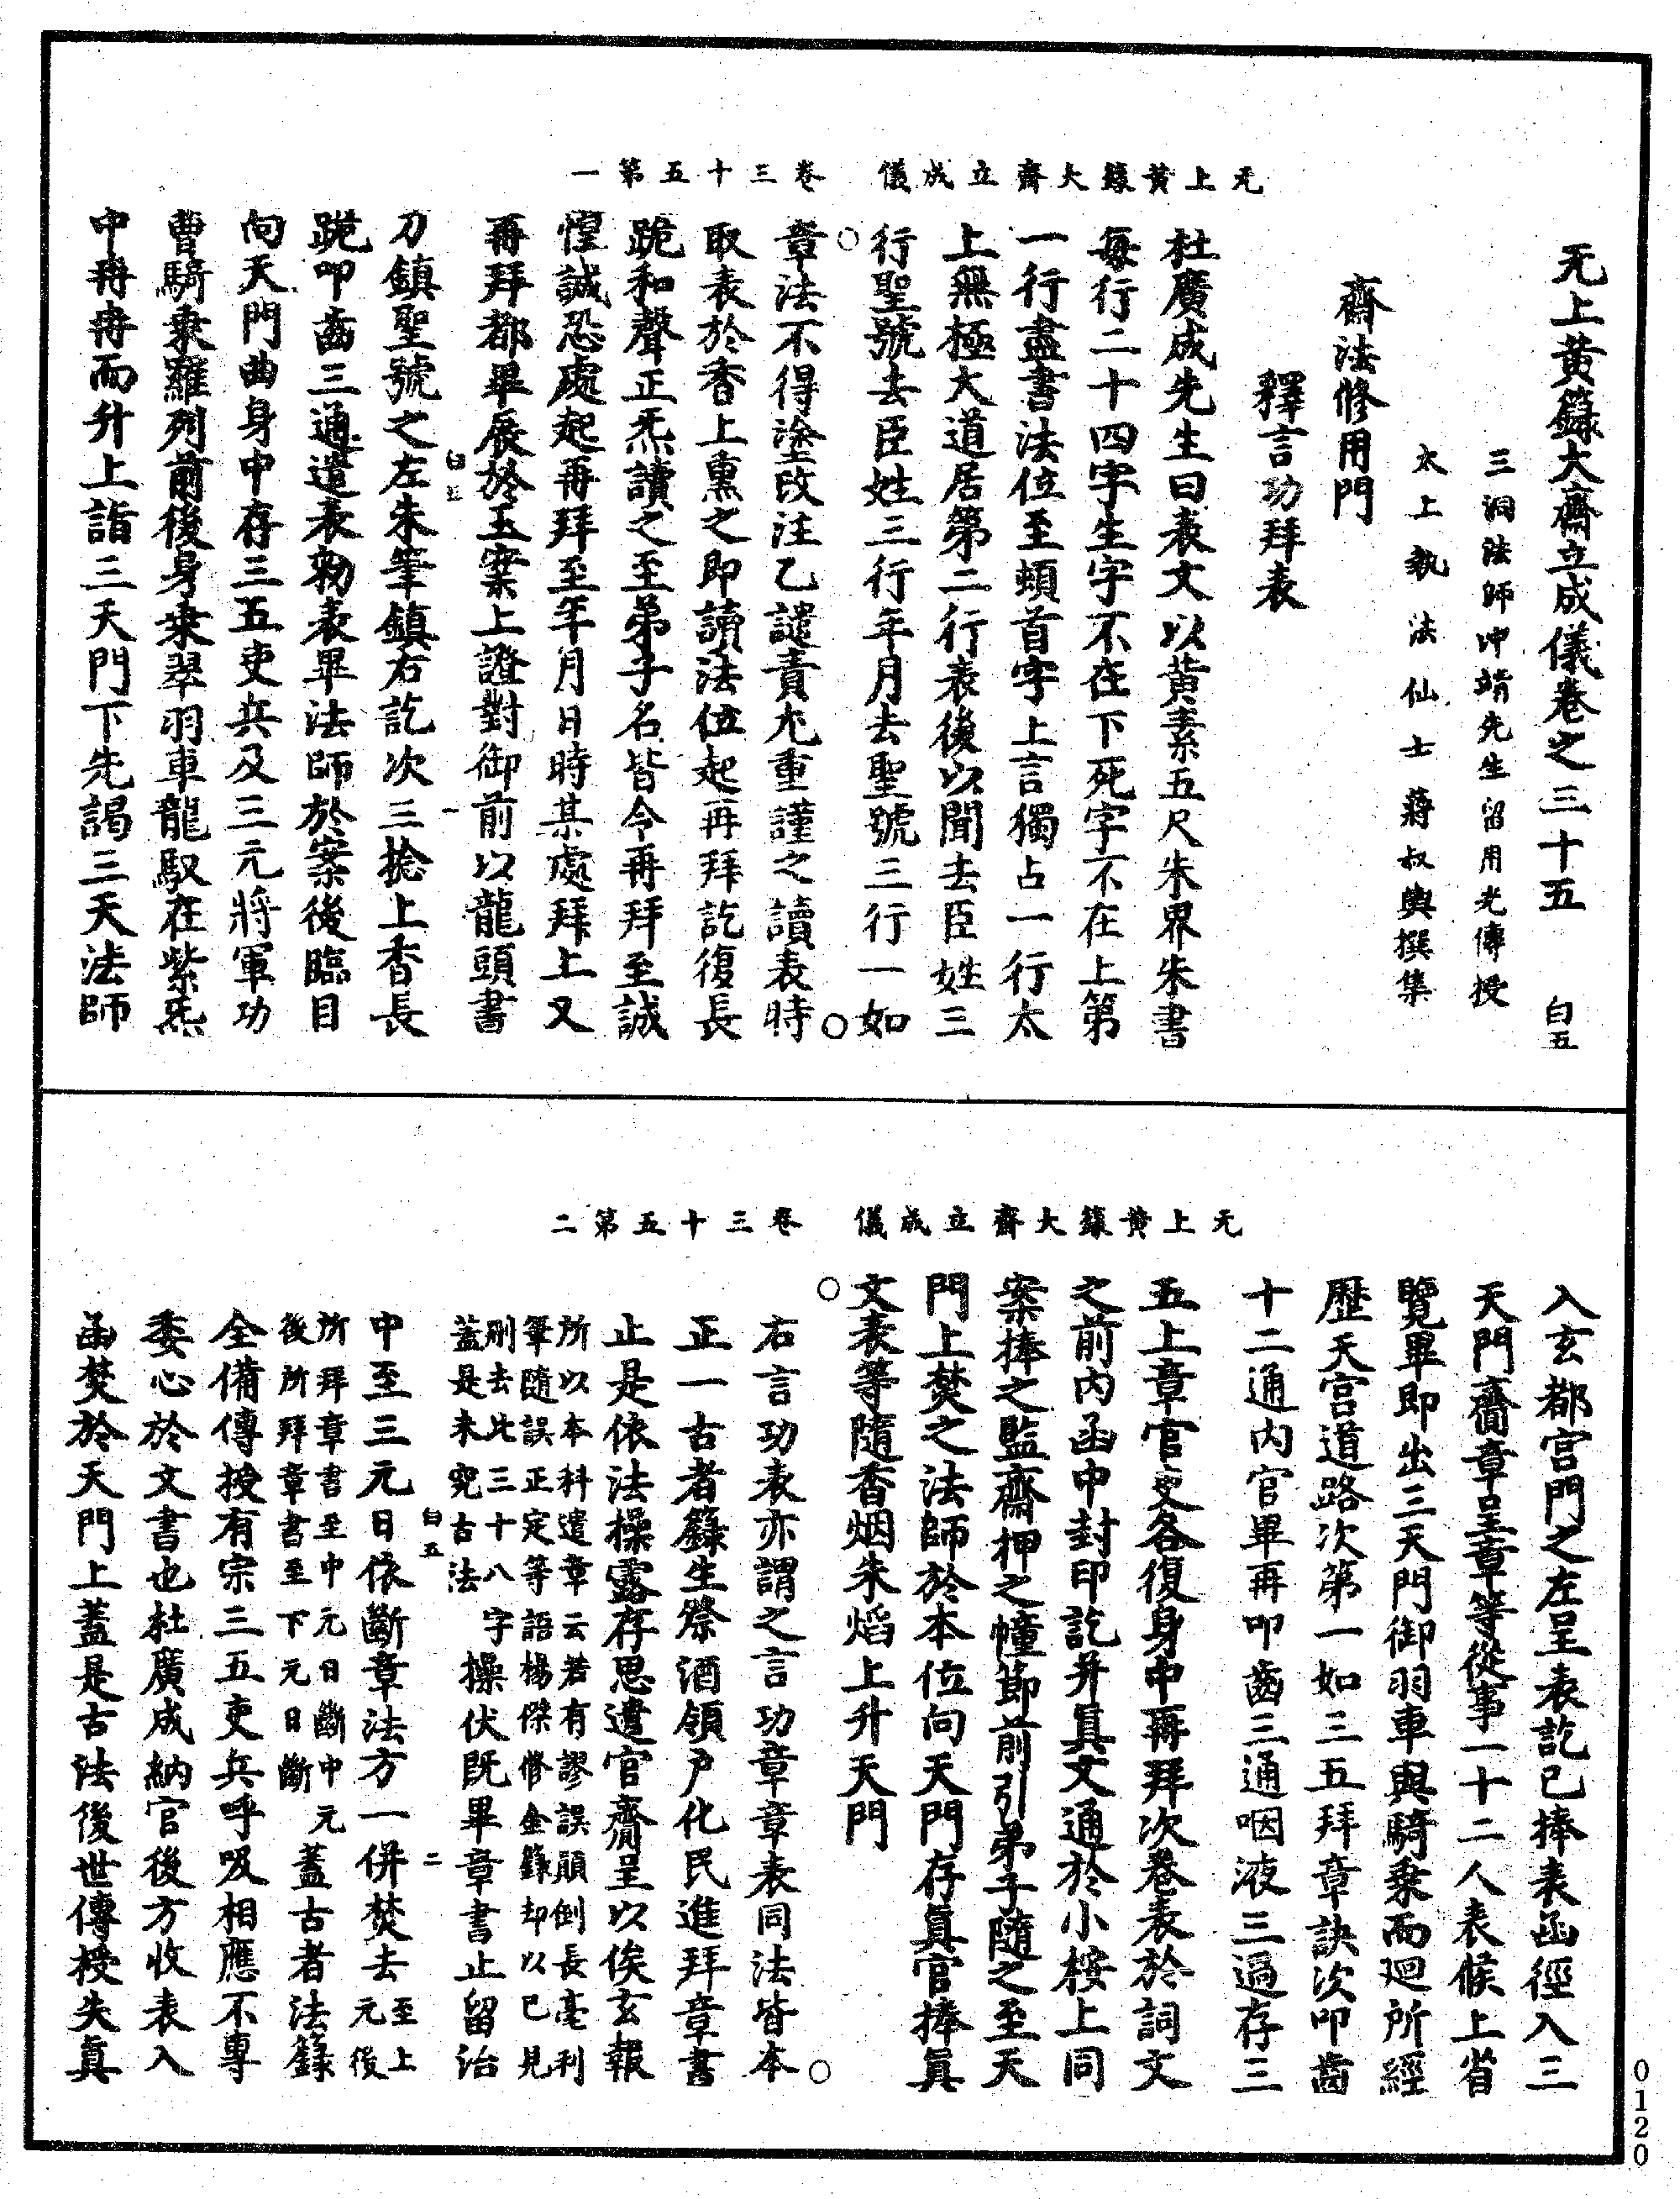 无上黃籙大齋立成儀 卷三十五第一
无上黃籙大齋立成儀卷之三十五 白五
三洞法師冲靖先生留用光傳授
太上執法仙士蔣叔輿撰集
齋法修用門
釋言功拜表
杜廣成先生曰表文以黃素五尺朱界朱書
每行二十四字生字不在下死字不在上第
一行盡書法位至頓首字上言獨占一行太
上無極大道居第二行表後以聞去臣姓三
行聖號去臣姓三行年月去聖號三行一如
章法不得塗改注乙譴責尤重謹之讀表時
取表於香上熏之即讀法位起再拜訖復長
跪和聲正炁讀之至弟子名皆令再拜至誠
惶誠恐處起再拜至年月日時某處拜上又
再拜都畢展於玉案上證對御前以龍頭書
白五 一
刀鎮聖號之左朱筆鎮右訖次三捻上香長
跪叩齒三通遣表勑表畢法師於案後臨目
向天門曲身中存三五吏兵及三元將軍功
曹騎乘羅列前後身乘翠羽車龍馭在紫炁
中冉冉而升上詣三天門下先謁三天法師
无上黃籙大齋立成儀 卷三十五第二
入玄都宮門之左呈表訖已捧表函徑入三
天門齋章呈章等從事一十二人表候上省
覽畢即出三天門御羽車與騎乘而迴所經
歷天宮道路次第一如三五拜章訣次叩齒
十二通內官畢再叩齒三通咽液三過存三
五上章官吏各復身中再拜次卷表於詞文
之前內函中封印訖并眞文通於小桉上同
案捧之監齋押之幢節前引弟子隨之至天
門上焚之法師於本位向天門存眞官捧眞
文表等隨香烟朱焰上升天門
右言功表亦謂之言功章章表同法皆本
正一古者籙生祭酒領戶化民進拜章書
止是依法操露存思遣官齎呈以俟玄報
所以本科遣章云若有謬誤顛倒長毫利
筆隨誤正定等語楊傑修金籙却以已見
刪去此三十八字
蓋是未究古法
操伏旣畢章書止留治
白五 二
中至三元日依斷章法方一併焚去至上
元後
所拜章書至中元日斷中元
後所拜章書至下元日斷
蓋古者法籙
全備傳授有宗三五吏兵呼吸相應不專
委心於文書也杜廣成納官後方收表入
函焚於天門上蓋是古法後世傳授失眞
0120